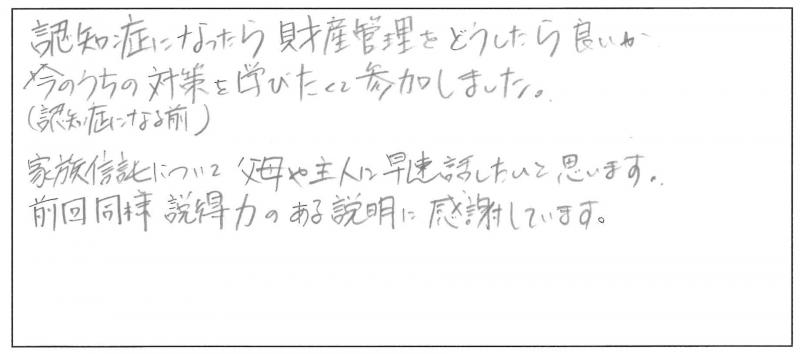 認知症になったら財産管理をどうしたら良いか
今のうちの対策を学びたくて参加しました。
(認知症になる前)
家族信託について父母や主人に早速話したいと思います。
前回同様説得力のある説明に感謝しています。